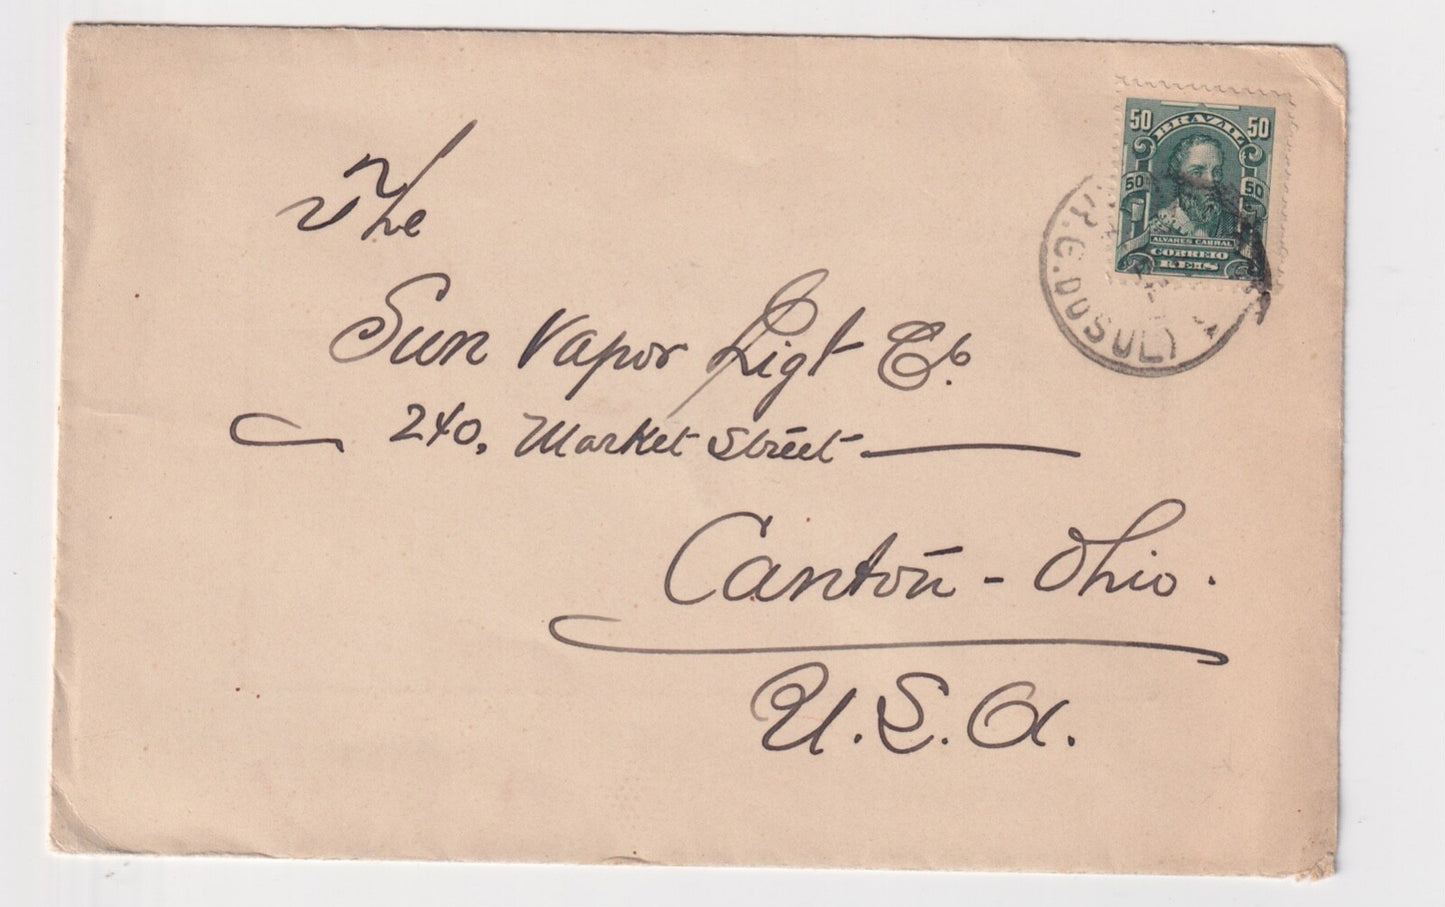 50 BRAZIL 50
50 50
ALVARES CABRAL
CORREIO
REIS
R.G.DO SUL)
The
Sun Vapor Ligt Co.
240, Market Street
Canton - Ohio.
U.S.A.